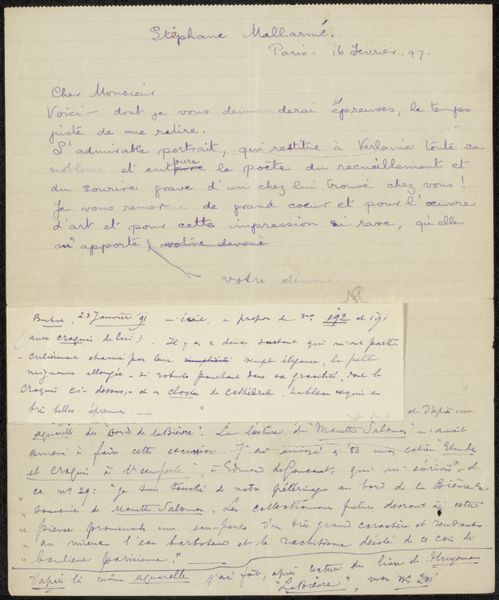 Stéphane Mallarmé.
Paris. 16 février. 97.
Cher Monsieur
Voici — dont je vous demanderai épreuves, le temps
juste de me relire.
L'admirable portrait, qui restitue à Verlaine toute sa
noblesse et entoure le poète du recueillement et
du sourire grave d'un chez lui trouvé chez vous!
Je vous remercie de grand coeur et pour l'œuvre
d'art et pour cette impression si rare, qu'elle
m'apporte votre dévoué
votre dévoué
23 Janvier 91 m'écrit, à propos de no. 192 et 191
(avec croquis de lui) — Il y en a deux surtout qui m'ont parti-
culièrement charmé par leur simplicité élégance, la petite
mignonne allongée — si robuste pourtant dans sa gracilité, dont le
croquis ci-dessus, et le clocher de cathédrale, tableau exquis en
très belles épreuves —
et d'après une
aquarelle des "Bords de la Bièvre". La lecture de "Manette Salomon" m'avait
amené à faire cette excursion. J'ai envoyé en '93 mon cahier "Etudes
et croquis", à Edmond de Goncourt, qui m'écrivit, de
ce no 20: "Je suis touché de votre pélérinage au bord de la Bièvre en
souvenir de Manette Salomon. Les collectionneurs futurs devront à cette
pieuse promenade une eau-forte d'un très grand caractère et rendant
au mieux l'eau et le rachitisme désolé de ce coin de
banlieue parisienne."
D'après la même aquarelle j'ai fait, après lecture du livre de Huysmans
"La Bièvre", mon No 201